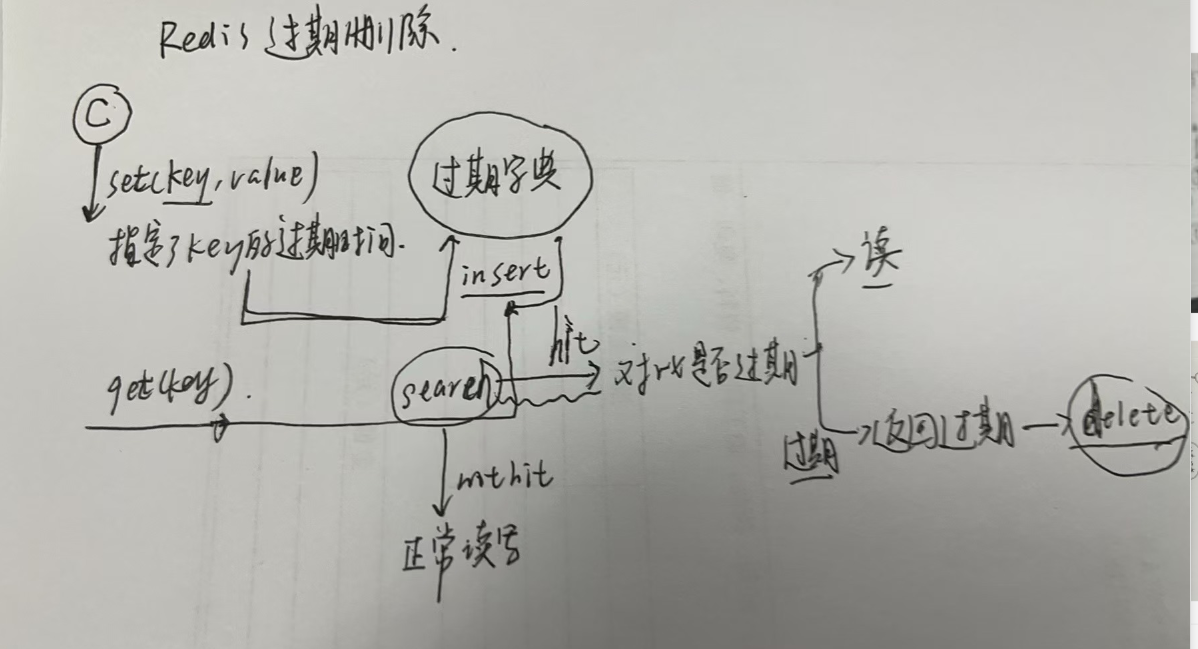 Redis 过期删除.
C
set(key,value)
过期字典
指定了key的过期时间.
insert
读
hit
get(key).
search
对比是否过期
过期
返回过期
delete
not hit
正常读写